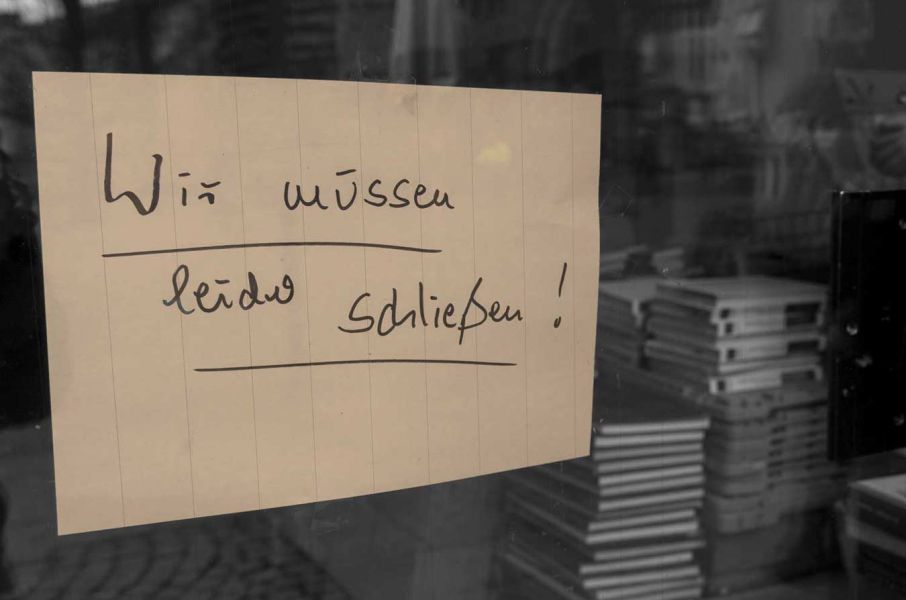 Wir müssen
leider schließen!